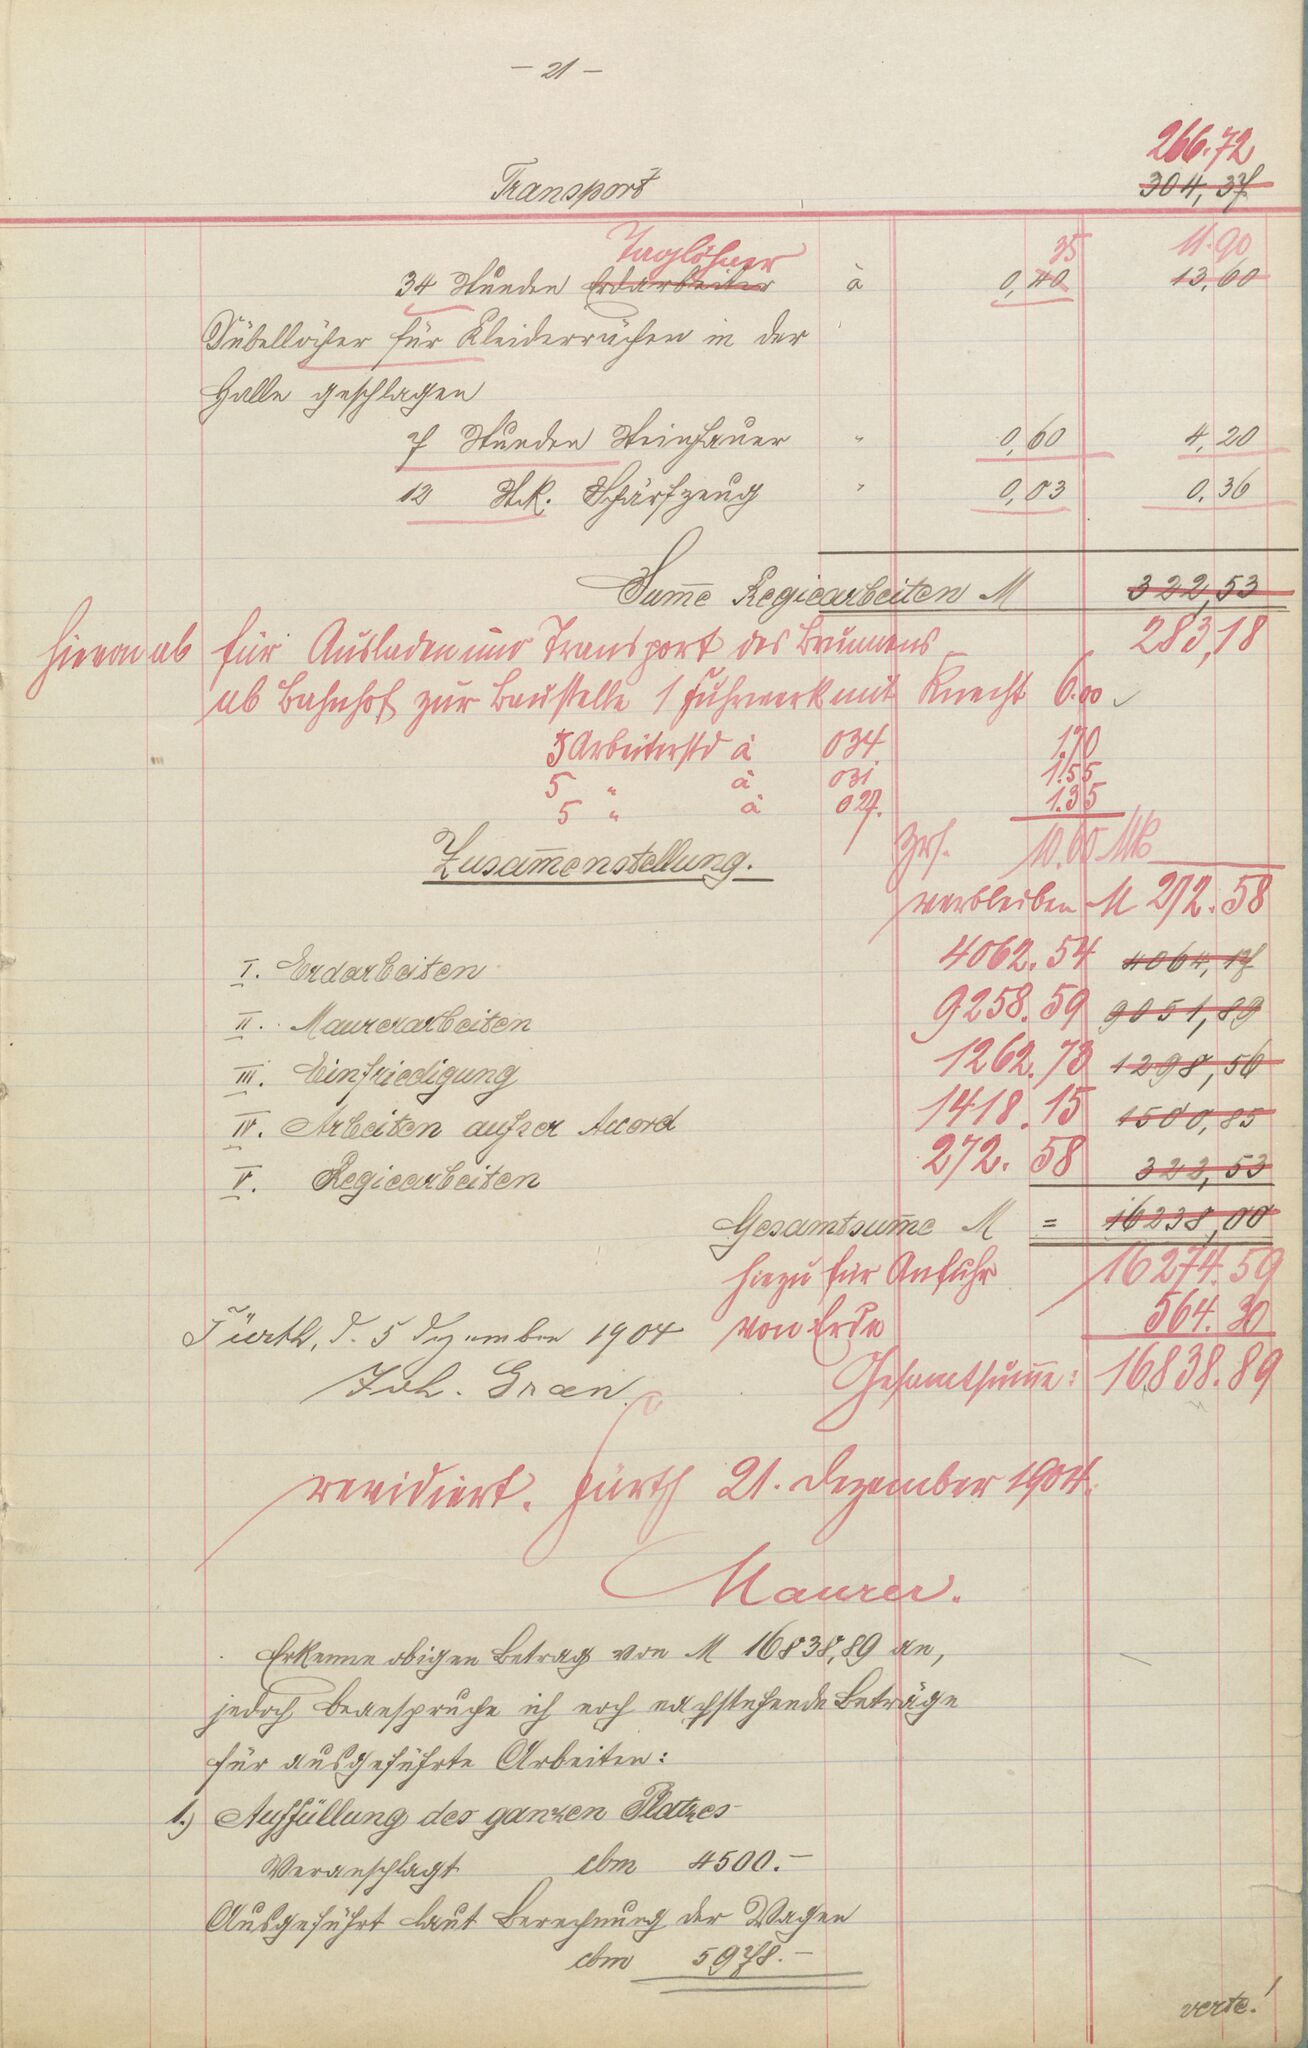 - 21 -
266.72
Transport 304,37
Taglöhner 35 11.90
34 Stunden Erdarbeiter à 0,40 13,60
Dübellöcher für Kleiderrächen in der
Halle geschlagen
7 Stunden Steinhauer " 0,60 4,20
12 Stk. Schärfzeug " 0,03 0,36
Sum̅e Regiearbeiten M 322,53
283,18
hievon ab für Ausladen und Transport des Brunnens
ab Bahnhof zur Baustelle 1 Fuhrwerk mit Knecht 6.00
5 Arbeiterstd à 034 1.70
5 " à 031 1.55
5 " à 027. 1.35
Zusam̅enstellung.
10.60 Mk
verbleiben M 272.58
I. Erdarbeiten 4062.54 4064,17
II. Maurerarbeiten 9258.59 9051,89
III. Einfriedigung 1262.73 1298,56
IV. Arbeiten außer Accord 1418.15 1500,85
V. Regiearbeiten 272.58 322,53
Gesamtsum̅e M = 16238,00
hiezu für Anfuhr 16274.59
von Erde 564.30
Fürth, d. 5 Dezember 1904
Gesamtsum̅e: 16838.89
Joh. Gran
revidiert. Fürth 21. Dezember 1904.
Maurer.
Erkenne obigen Betrag von M 16838,89 an,
jedoch beanspruche ich noch nachstehende Beträge
für ausgeführte Arbeiten:
1.) Auffüllung des ganzen Platzes
Veranschlagt cbm 4500.-
Ausgeführt laut Berechnung der Wagen
cbm 5978.-
verte!